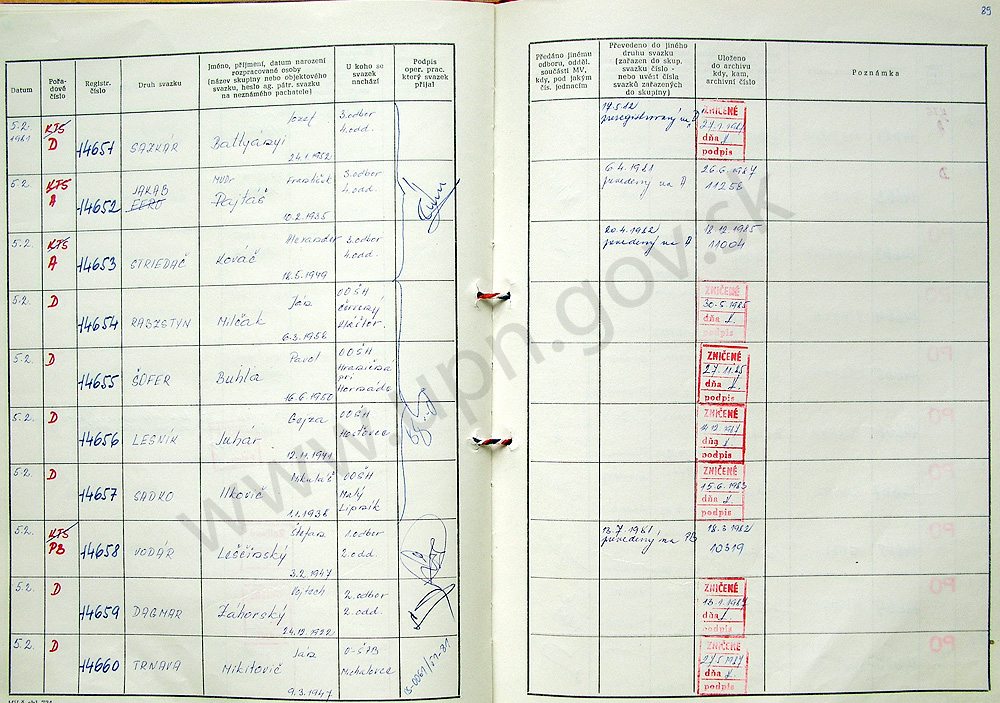 89
Datum
Pořa-
dové
číslo
Registr.
číslo
Druh svazku
Jméno, příjmení, datum narození
rozpracované osoby
(název skupiny nebo objektového
svazku, heslo ag. pátr. svazku
na neznámého pachatele)
U koho se
svazek
nachází
Podpis
oper. prac.
který svazek
přijal
Předáno jinému
odboru, odděl.
součásti MV,
kdy, pod jakým
čís. jednacím
Převedeno do jiného
druhu svazku
(zařazen do skup.
svazku číslo -
nebo uvést čísla
svazků zařazených
do skupiny)
Uloženo
do archivu
kdy, kam,
archivní číslo
Poznámka
5.2.
1981
KTS
D
14651
Jozef
24.1.1952
3. odbor
4. odd.
ZNIČENÉ
dňa
podpis
5.2.
KTS
A
14652
JAKAB
FERO
MVDr
František
Pajtáš
10.2.1935
3. odbor
4. odd.
6.4.1981
prevedený na A
26.6.1987
11256
5.2.
KTS
A
14653
STRIEDAČ
Alexander
Kováč
3. odbor
4. odd.
20.4.1982
prevedený na A
18.12.1985
11004
5.2.
D
14654
Ján
Milčak
6.3.1956
OOŠH
ZNIČENÉ
30.5.1985
dňa
podpis
5.2.
D
14655
ŠOFER
Pavol
Buhla
16.6.1950
OOŠH
ZNIČENÉ
dňa
podpis
5.2.
D
14656
LESNÍK
Gejza
Juhár
12.11.1941
OOŠH
Hosťovce
ZNIČENÉ
dňa
podpis
5.2.
D
14657
SADKO
Mikuláš
Ilkovič
1.1.1938
OOŠH
Malý
Lipník
ZNIČENÉ
15.6.1983
dňa
podpis
5.2.
KTS
PB
14658
VODÁR
Štefan
Leščinský
3.2.1947
1. odbor
2. odd.
13.7.1981
prevedený na PB
18.3.1982
10319
5.2.
D
14659
DAGMAR
Vojtech
Záhorský
24.12.1922
2. odbor
2. odd.
ZNIČENÉ
dňa
podpis
5.2.
D
14660
TRNAVA
Ján
Mikitovič
9.3.1947
O-ŠTB
Michalovce
ZNIČENÉ
dňa
podpis
www.upn.gov.sk